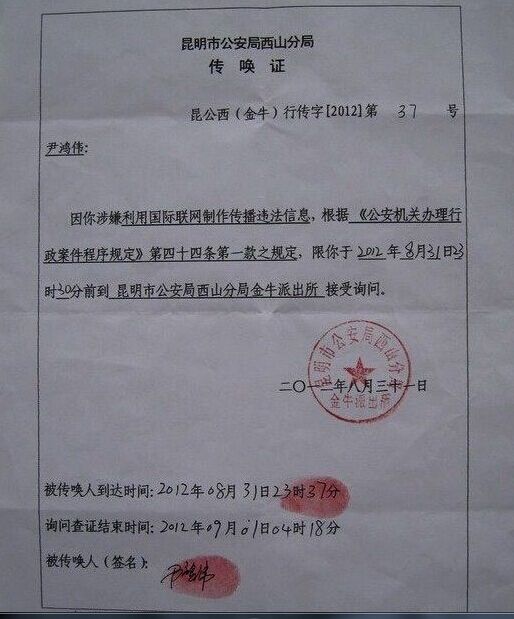 昆明市公安局西山分局
传唤证
昆公西（金牛）行传字[2012]第 37 号
尹鸿伟:
因你涉嫌利用国际联网制作传播违法信息，根据《公安机关办理行
政案件程序规定》第四十四条第一款之规定，限你于2012年8月31日23
时30分前到 昆明市公安局西山分局金牛派出所 接受询问。
昆明市公安局西山分局
金牛派出所
二〇一二年八月三十一日
被传唤人到达时间:2012年08月31日23时37分
询问查证结束时间:2012年09月01日04时18分
被传唤人（签名）:尹鸿伟